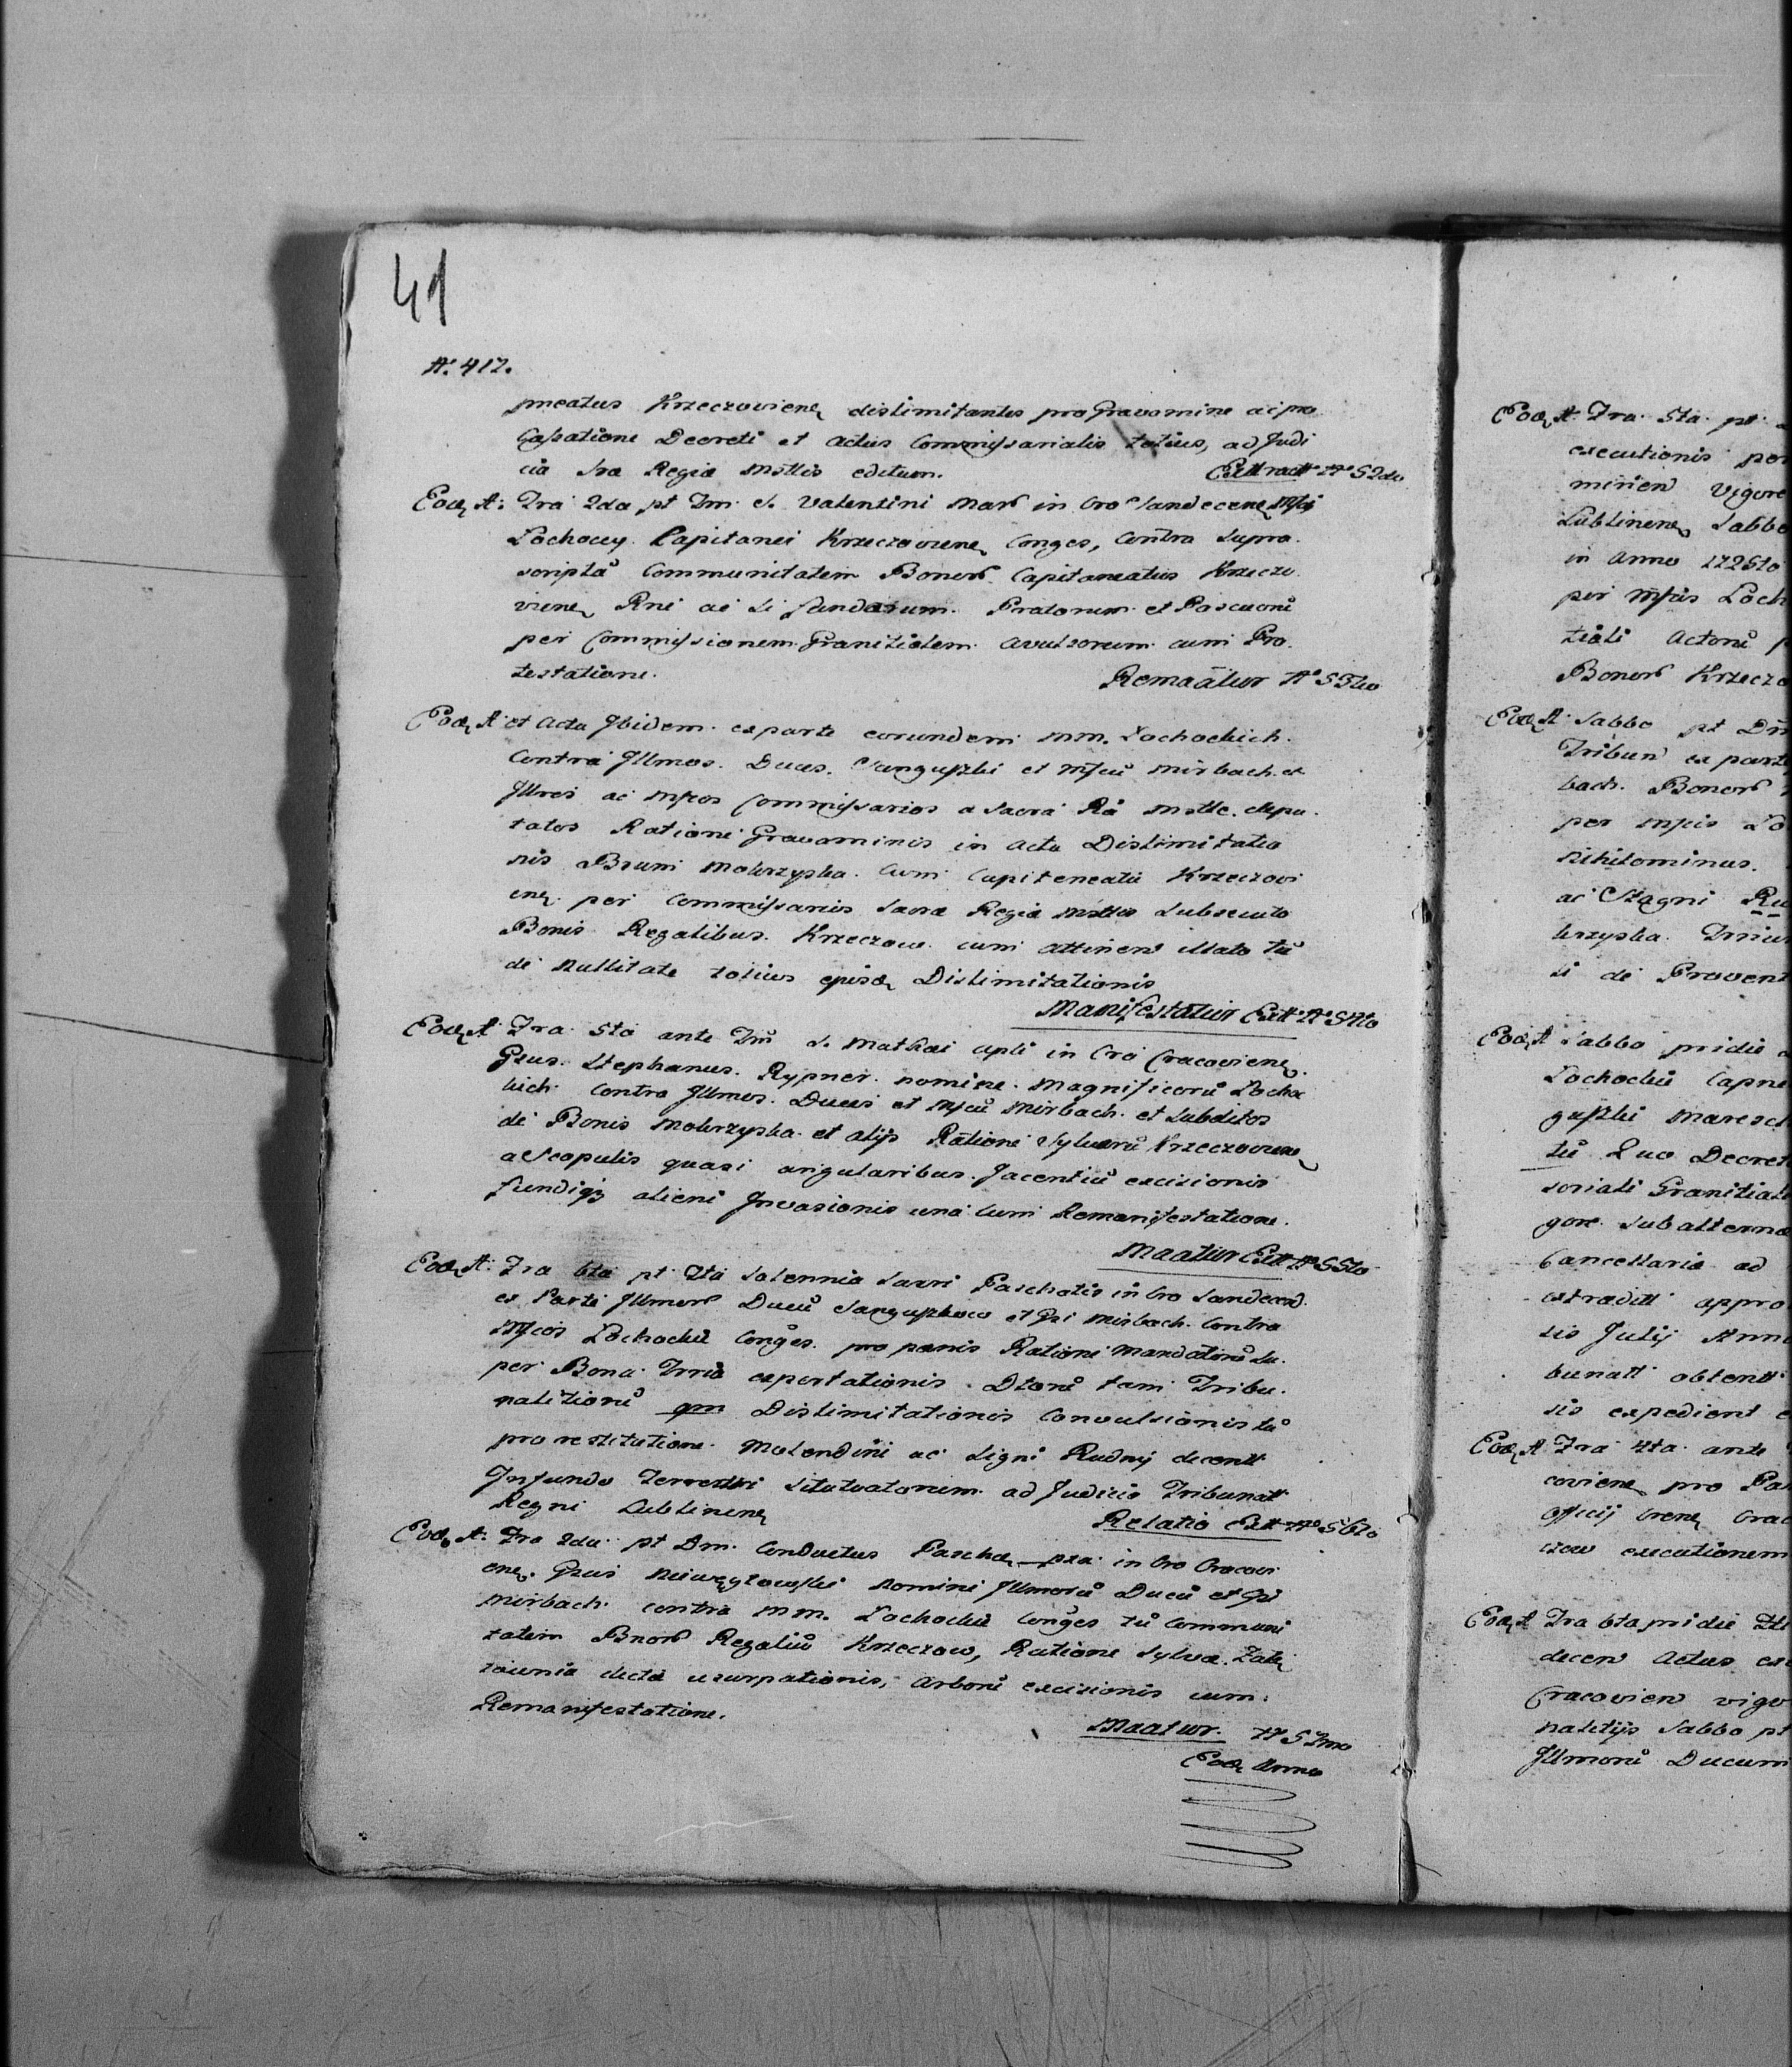 41
N. 412.
pneatus Krzeczoviene dislimitantes pro Gravamine ac pro
Cassatione Decreti et actus Commissarialis totius, ad Judi
cia Sae Regiae Mttis editum. Extractt No 52do
Eod A: Fra 2da pt Dm. S. Valentini Mar in Cro Sandecene Mfci
Łochoccy Capitanei Krzeczoviene Conges, Contra Supra
scriptā Communitatem Bonor Capitaneatus Krzeczo
viene Rne ac Si fundorum. Pratorum et Pascuorū
per Commissionem Granitialem avulsorum cum Pro
testatione. Remaātur No 53tio
Eod A et Actu Ibidem ex parte eorundem MM. Łochockich
Contra Illmos. Duces. Sanguszki et Mfcū Mirbach et
Illres ac Mfcos Commissarios a Sacra Rā Mtte. depu
tatos Ratione Gravaminis in actu Dislimitatio
nis Bnum Mokrzyska. Cum Capiteneatu Krzeczovi
ene per Commissarios Sacrae Regiae Mttis Subsecuto
Bonis Regalibus. Krzeczow cum attinen illato tū
de Nullitate totius ejusd Dislimitationis
Manifestatur Ext No 54to
Eod A Fra 5ta ante Dm S. Mathai apli in Cro Cracoviene
Gsus. Stephanus. Rypner. nomine. Magnificorū Łocho
kich Contra Illmos. Duces et Mfcū Mirbach. et Subditos
de Bonis Mokrzyska et alijs Ratione Sylvarū Krzeczoviene
a Scopulis quasi angularibus. Jacentiū excisionis
fundiq alieni Invasionis una cum Remanifestatione.
Maatur Ext No 55to
Eod A: Fra 6ta pt Fta Solennia Sacri Paschatis in Cro Sandecen
ex Parte Illmor Ducū Sanguszkow et Gsi Mirbach. Contra
Mfcos Łochockie Conges. pro panis Ratione Mandatorū Su
per Bona Trria exportationis Dtorū tam Tribu
nalitiorū qm Dislimitationis Convulsionis tū
pro restitutione Molendini ac Ligni Rudny dicentt
In fundo Terrestri Situtuatorum ad Judicia Tribunatt
Regni Lublinene Relatio Ext No 56to
Eod A: Fra 2da pt Dm. Conductus Paschae pza in Cro Cracovi
ene. Gsus Niewęgłowski Nomine Illmorū Ducū et Gsi
Mirbach contra MM. Łochockie Conges tū Communi
tatem Bnor Regaliū Krzeczow, Ratione Sylvae. Zato
ziunia dicta usurpationis, Arborū excisionis cum
Remanifestatione.
Maatur. No 57mo
Eod Anno
Eod A Fra 5ta pt
executionis per
minien Vigore
Lublinene Sabbo
in Anno 1726to
per Mfcis Łoch
tiali Actorū
Bonor Krzeczo
Eod A Sabbo pt Dm
Tribun ex parte
bach. Bonor
per Mfcis Ło
Nihilominus.
ac Stagni Ru
krzyska. Trrius
si de Provent
Eod A Sabbo pridie
Łochockie Capne
guszki Maresch
tū Quo Decret
soriali Granitiali
gore. Subalterna
Cancellaria ad
extraditt appro
sis Julij Anno
bunatt obtentt
sis expedient
Eod A Fra 4ta ante
coviene pro Par
officij Crene Crac
czow executionem
Eod A Fra 6ta pridie
decen Actus ex
Cracovien vigo
nalitijs Sabbo pt
Illmorū Ducum